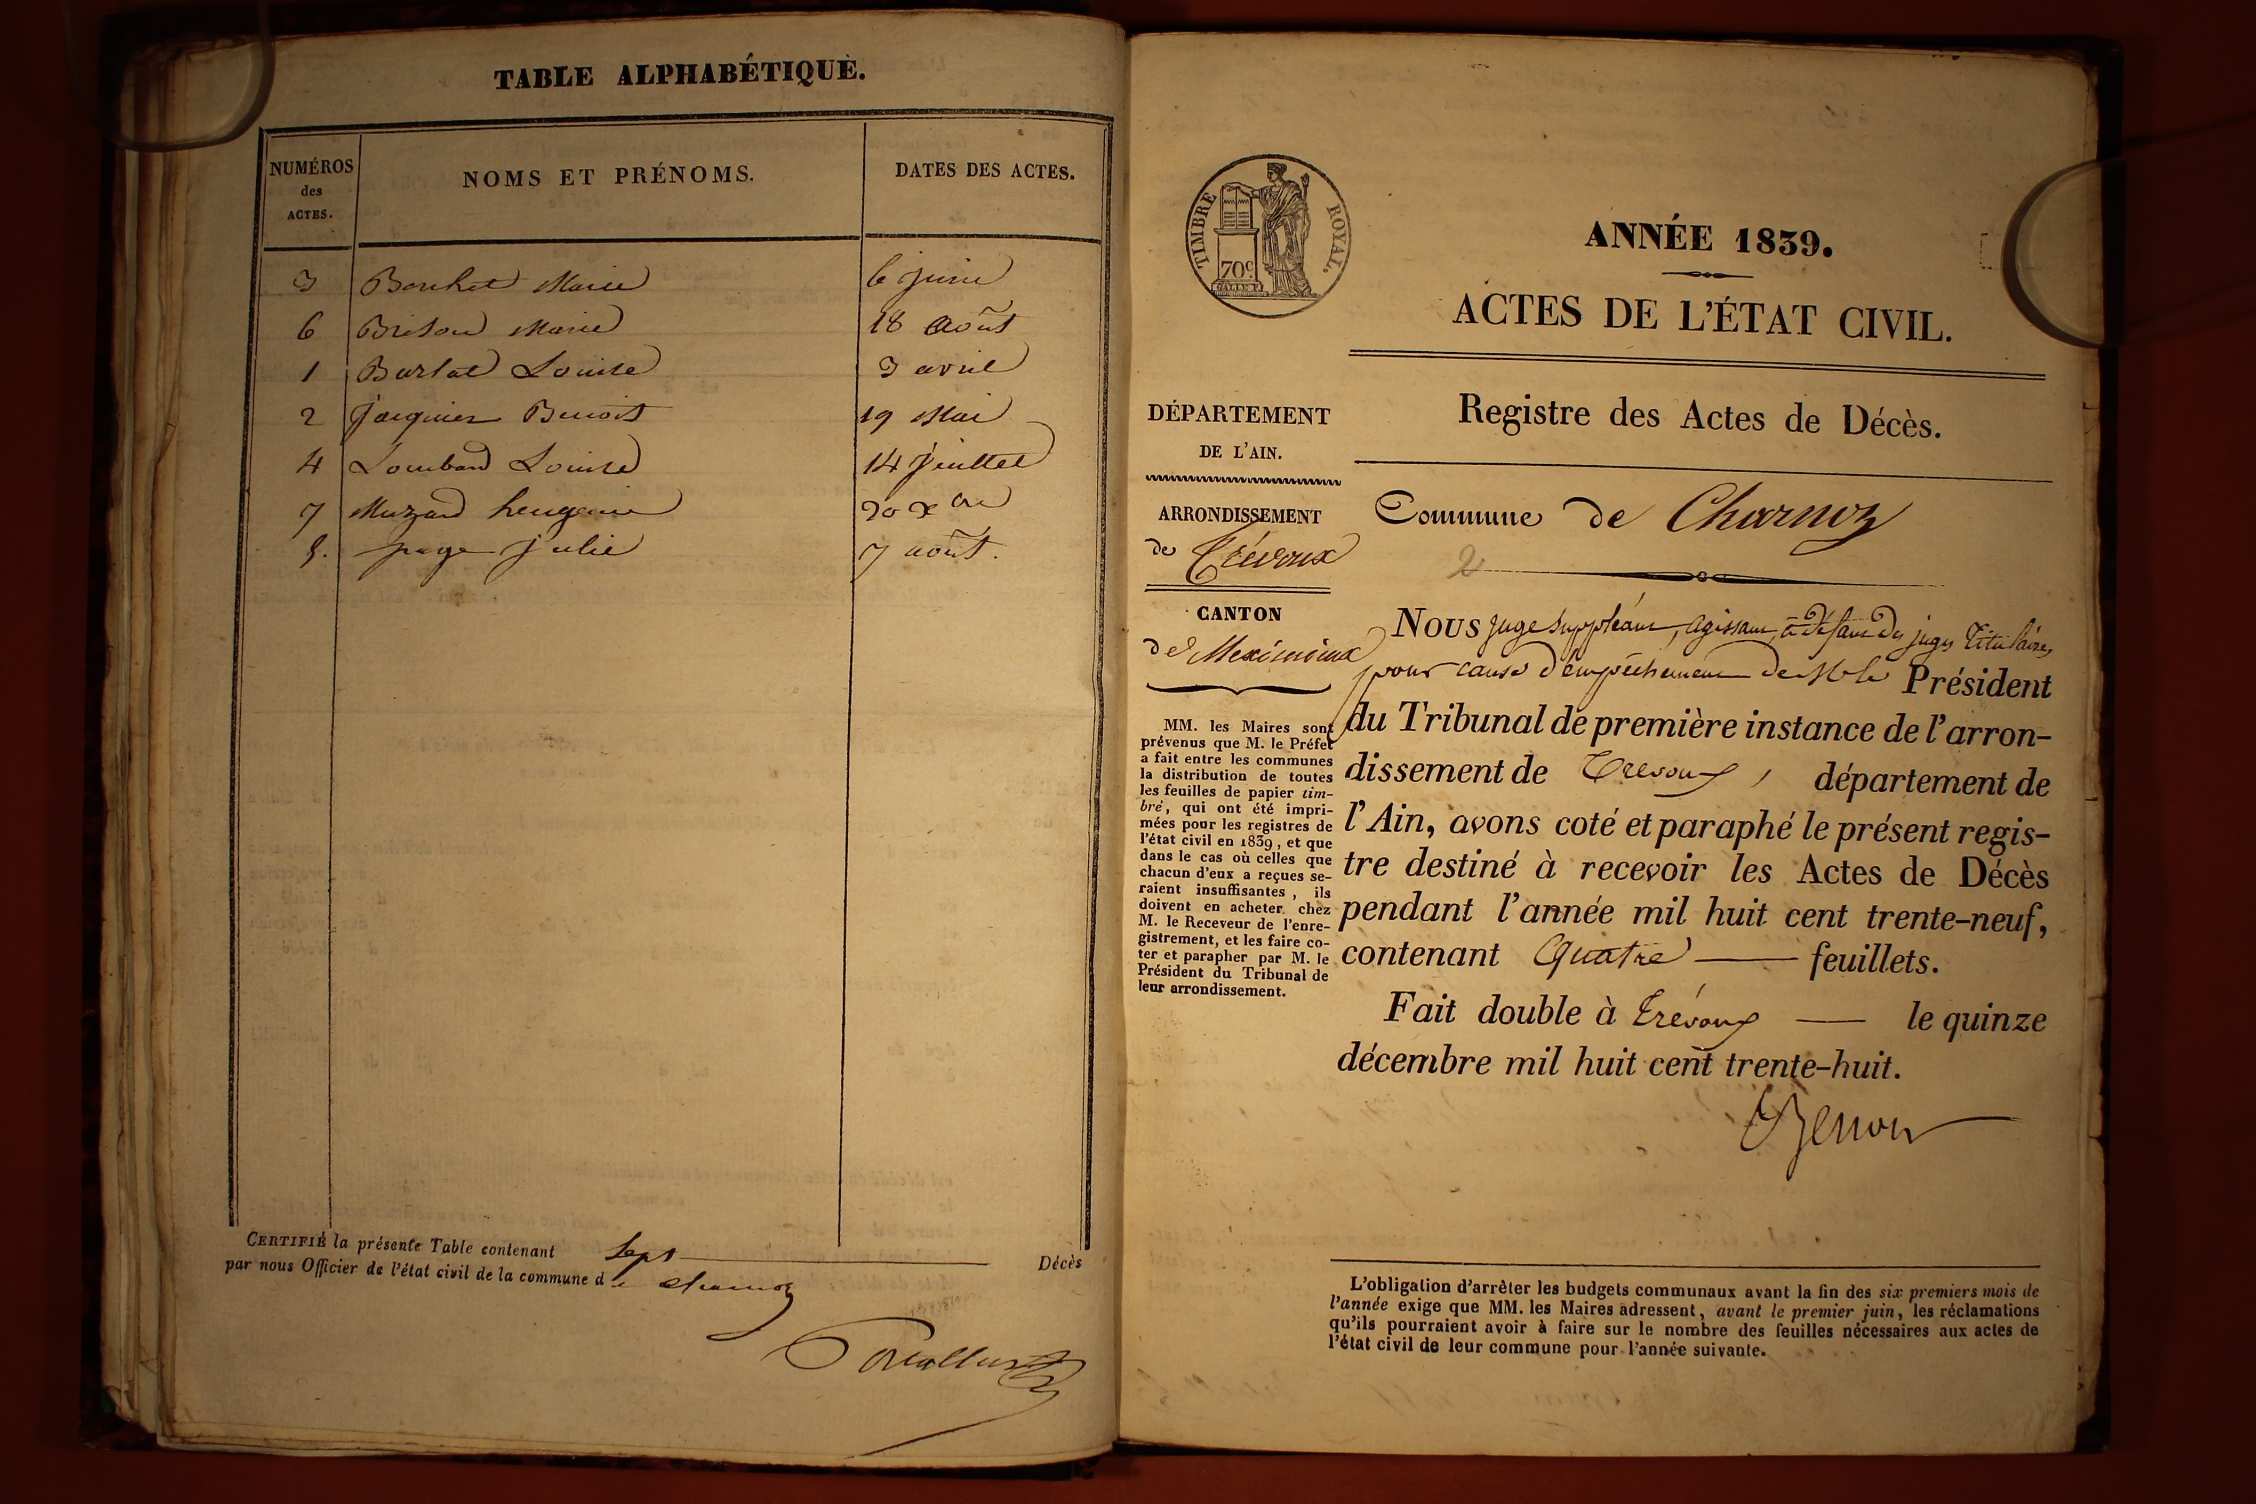 TABLE ALPHABÉTIQUE.
NUMÉROS des ACTES. NOMS ET PRÉNOMS. DATES DES ACTES.
3 Bouchet Marie 6 juin
6 Brison Marie 18 Août
1 Burlat Louise 3 avril
2 jacquier Benoit 19 Mai
4 Lombard Louise 14 juillet
7 Muzard heugenie 20 Xbre
5. page julie 7 août.
CERTIFIÉ la présente Table contenant sept Décès
par nous Officier de l'état civil de la commune de charnoz
TIMBRE ROYAL.
70c.
ANNÉE 1839.
ACTES DE L'ÉTAT CIVIL.
Registre des Actes de Décès.
DÉPARTEMENT
DE L'AIN.
ARRONDISSEMENT
de Trévoux
CANTON
de Meximieux
MM. les Maires sont
prévenus que M. le Préfet
a fait entre les communes
la distribution de toutes
les feuilles de papier tim-
bré, qui ont été impri-
mées pour les registres de
l'état civil en 1839, et que
dans le cas où celles que
chacun d'eux a reçues se-
raient insuffisantes, ils
doivent en acheter chez
M. le Receveur de l'enre-
gistrement, et les faire co-
ter et parapher par M. le
Président du Tribunal de
leur arrondissement.
Commune de Charnoz
2
Nous juge suppléant, agissant à défaut des juges titulaires,
pour cause d'empêchement de M. le Président
du Tribunal de première instance de l'arron-
dissement de Trevoux, département de
l'Ain, avons coté et paraphé le présent regis-
tre destiné à recevoir les Actes de Décès
pendant l'année mil huit cent trente-neuf,
contenant Quatre feuillets.
Fait double à Trévoux le quinze
décembre mil huit cent trente-huit.
L'obligation d'arrêter les budgets communaux avant la fin des six premiers mois de
l'année exige que MM. les Maires adressent, avant le premier juin, les réclamations
qu'ils pourraient avoir à faire sur le nombre des feuilles nécessaires aux actes de
l'état civil de leur commune pour l'année suivante.